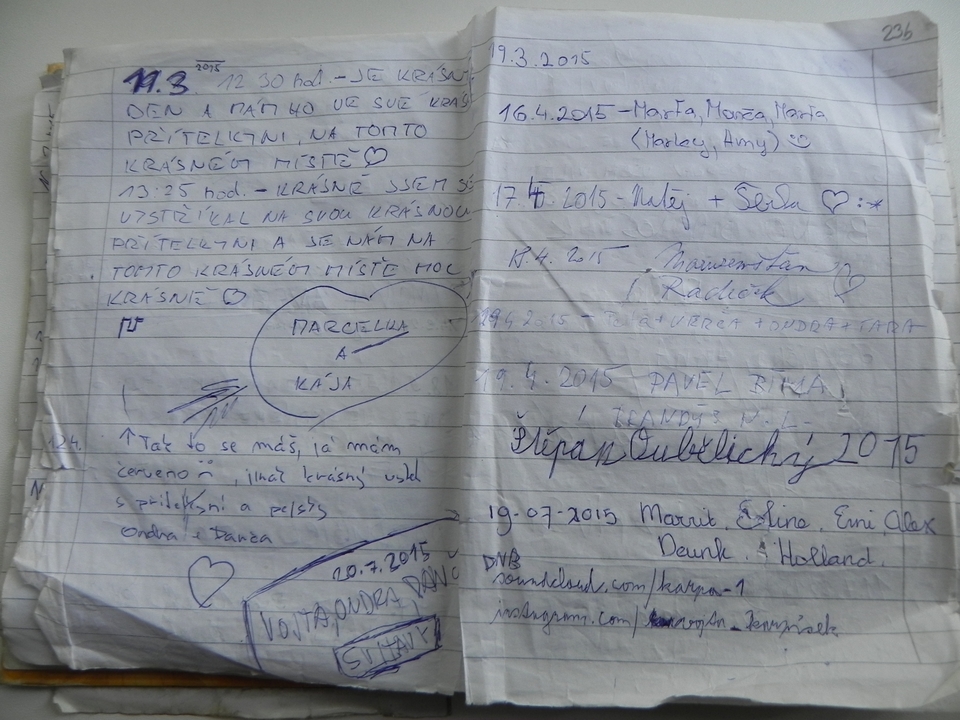 19.3. 2015 12 30 hod. - JE KRÁSN
DEN A MÁM HO VE SVÉ KRÁS
PŘÍTELKYNI, NA TOMTO
KRÁSNÉM MÍSTĚ ♡
13:25 hod. - KRÁSNĚ JSEM SE
VYSTŘÍKAL NA SVOU KRÁSNOU
PŘÍTELKYNI A JE NÁM NA
TOMTO KRÁSNÉM MÍSTĚ MOC
KRÁSNĚ ♡
MARCELKA
A
KÁJA
↑ Tak to se máš, já mám
červeno , jinač krásný
s přítelkyní a pejsky
Ondra + Danča
♡
20.7.2015
VOJTA, ONDRA, DAN
SVITAVY
236
19.3.2015
16.4.2015 - Marťa, Monča, Marťa
(Harley, Amy)
17.4. 2015 - Matěj + Sěďa ♡ :-*
18.4. 2015 ♡
Radeček
19.4 2015 - + VERČA + ONDRA + TARA
19. 4. 2015 PAVEL
Štěpán Oubělický 2015
19-07-2015 Marrit, Eline, Emi, Alex
Deunk. Holland.
DNB
soundcloud.com/karpa-1
instagram.com/